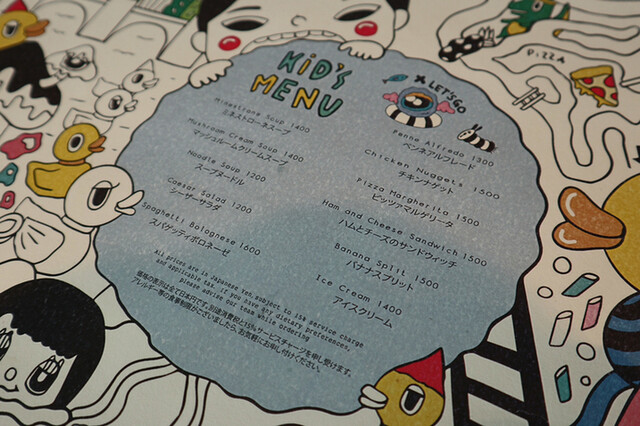 KiD'S
MENU
Minestrone Soup 1400
ミネストローネスープ
Mushroom Cream Soup 1400
マッシュルームクリームスープ
Noodle Soup 1200
スープヌードル
Caesar Salad 1200
シーザーサラダ
Spaghetti Bolognese 1600
スパゲッティボロネーゼ
LET'S GO
Penne Alfredo 1300
ペンネアルフレード
Chicken Nuggets 1500
チキンナゲット
Pizza Margherita 1500
ピッツァマルゲリータ
Ham and Cheese Sandwich 1500
ハムとチーズのサンドウィッチ
Banana Split 1500
バナナスプリット
Ice Cream 1400
アイスクリーム
All prices are in Japanese Yen subject to 15% service charge
and applicable tax. If you have any dietary preferences,
please advise our team while ordering.
価格の表示は全て日本円です。別途消費税と15%サービスチャージを申し受けます。
アレルギー等の食事制限がございましたら、お気軽にお申し付けください。
PiZZA